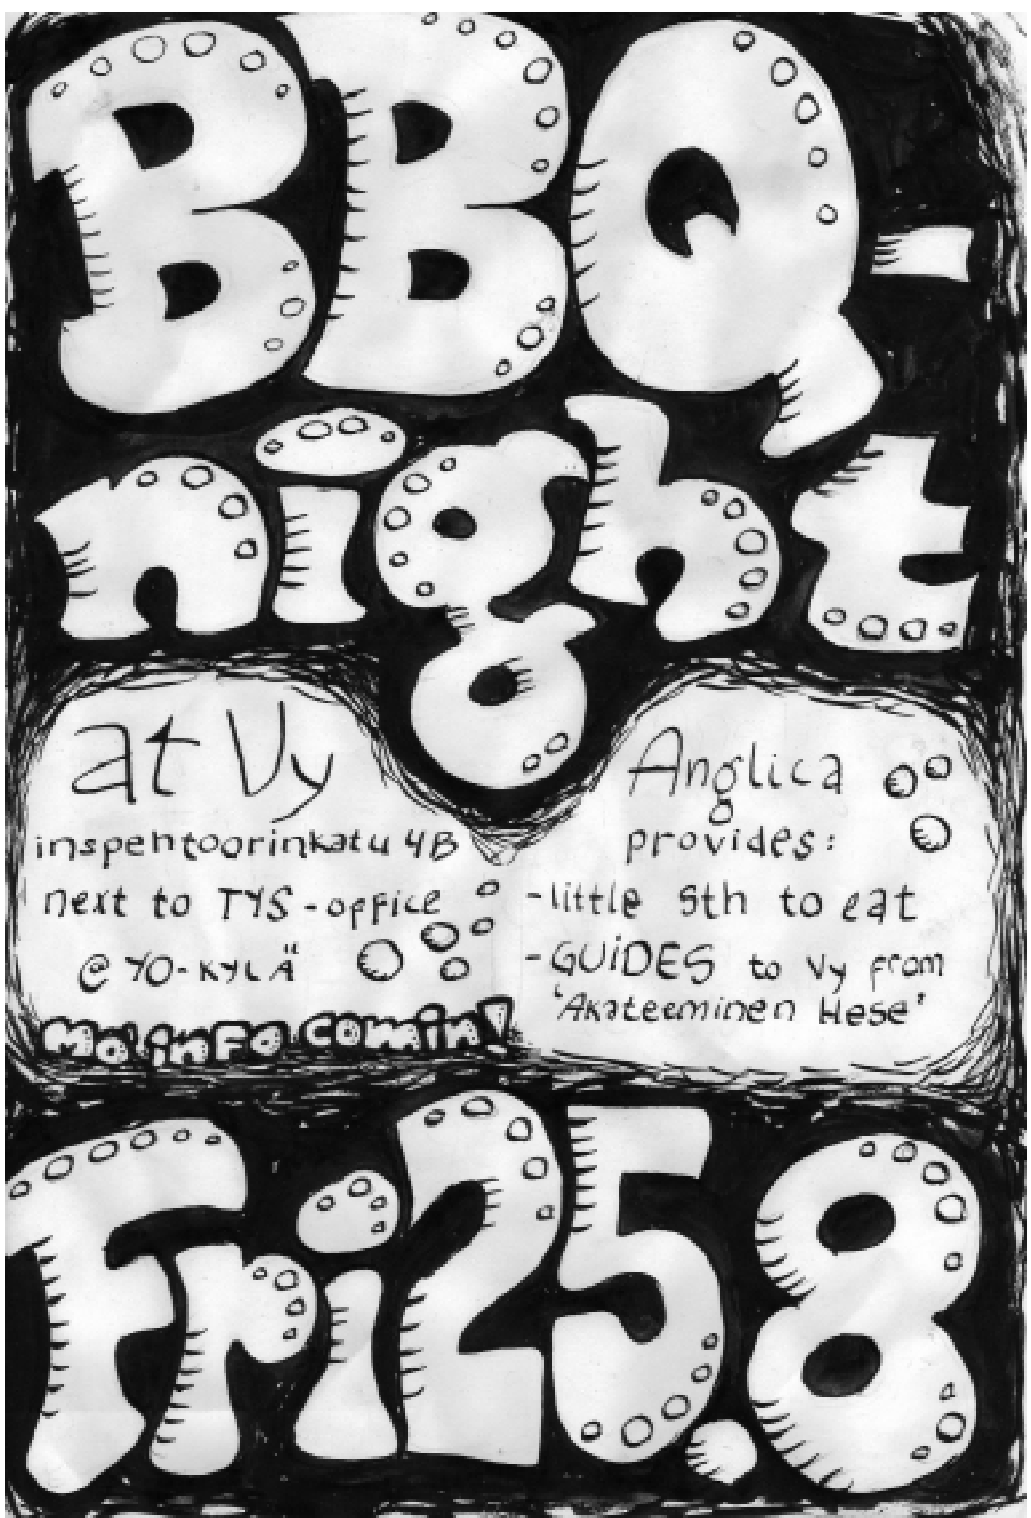 BBQ-
night
at Vy
inspehtoorinkatu 4B
next to TYS-office
@ YO-KYLÄ
Mo' info comin!
Anglica
provides:
-little sth to eat
-GUiDES to Vy from
'Akateeminen Hese'
Fri 25.8